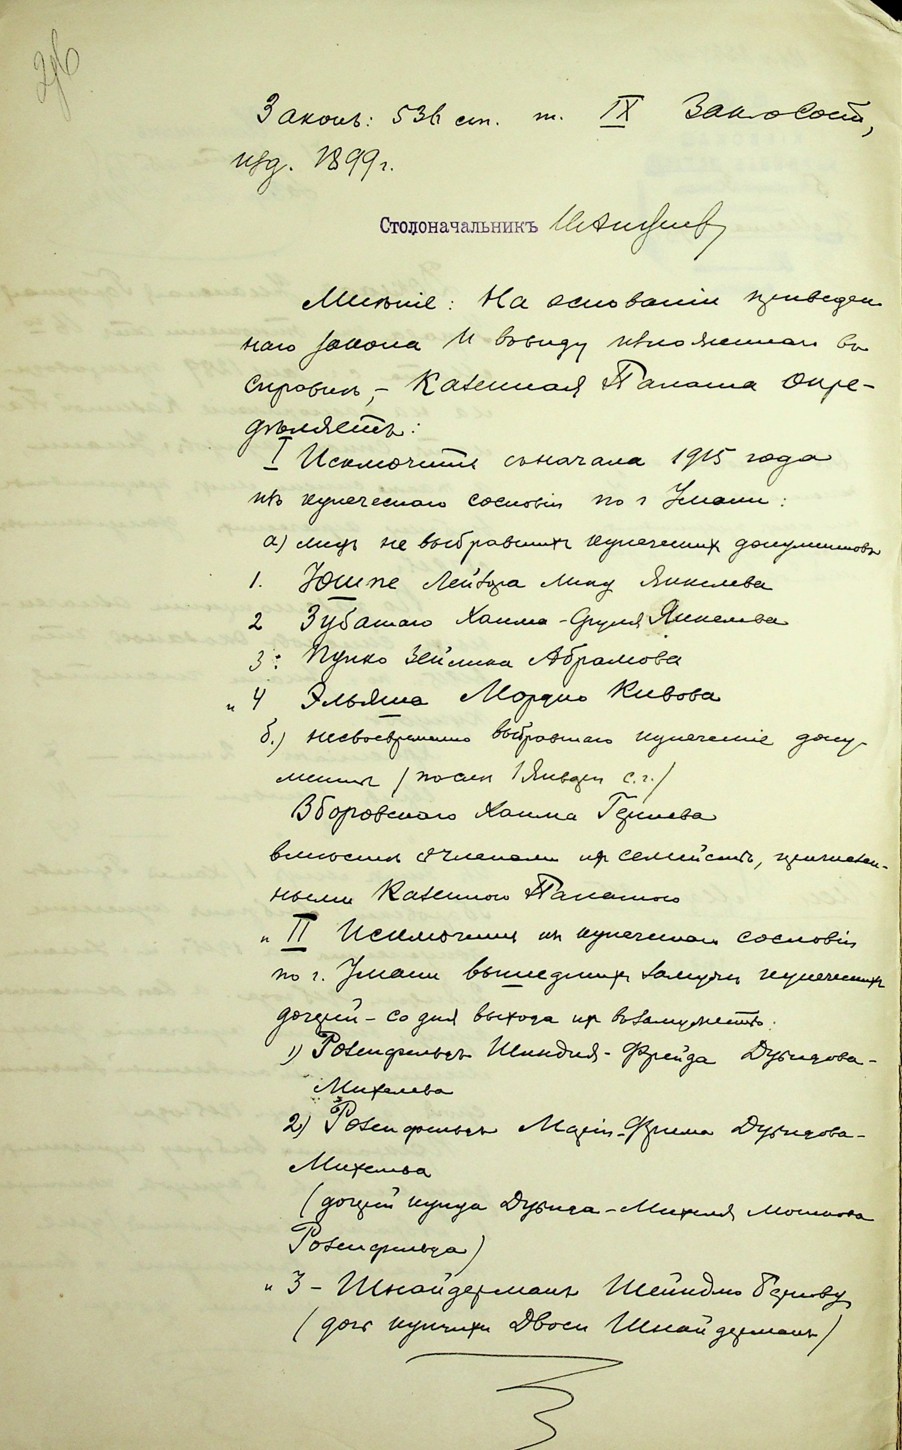 Законъ: 536 ст. т. IX Зак. о Сост,
изд. 1899 г.
Столоначальникъ
Мнѣніе: На основаніи приведен
наго закона и ввиду изложеннаго въ
справкѣ, – Казенная Палата Опре-
дѣляетъ:
I Исключить съ начала 1915 года
изъ купеческаго сословія по г Умани:
а) лицъ не выбравшихъ купеческихъ документовъ
1. Юшпе Лейзора Янкелева
2 Зубатаго Хаима-Сруля Янкелева
3. Пунко Зейлика Абрамова
" 4 Эльяша Мордко Кивова
б.) несвоевременно выбравшаго купеческіе доку-
менты (послѣ 1 Января с.г.)
Зборовскаго Хаима Гершева
вмѣстѣ съ членами ихъ семействъ, причислен-
ными Казенною Палатою
" II Исключить изъ купеческаго сословія
по г. Умани вышедшихъ замужъ купеческихъ
дочерей – со дня выхода ихъ въ замужество:
1) Розенфельдъ Шиндля-Фрейда Дувидова-
Михелева
2) Розенфельдъ Дувидова-
Михелева
(дочерей купца Дувида-Михеля Мошкова
Розенфельда)
" 3 – Шнайдерманъ Шейндлю Беркову
(дочь купчихи Двоси Шнайдерманъ)